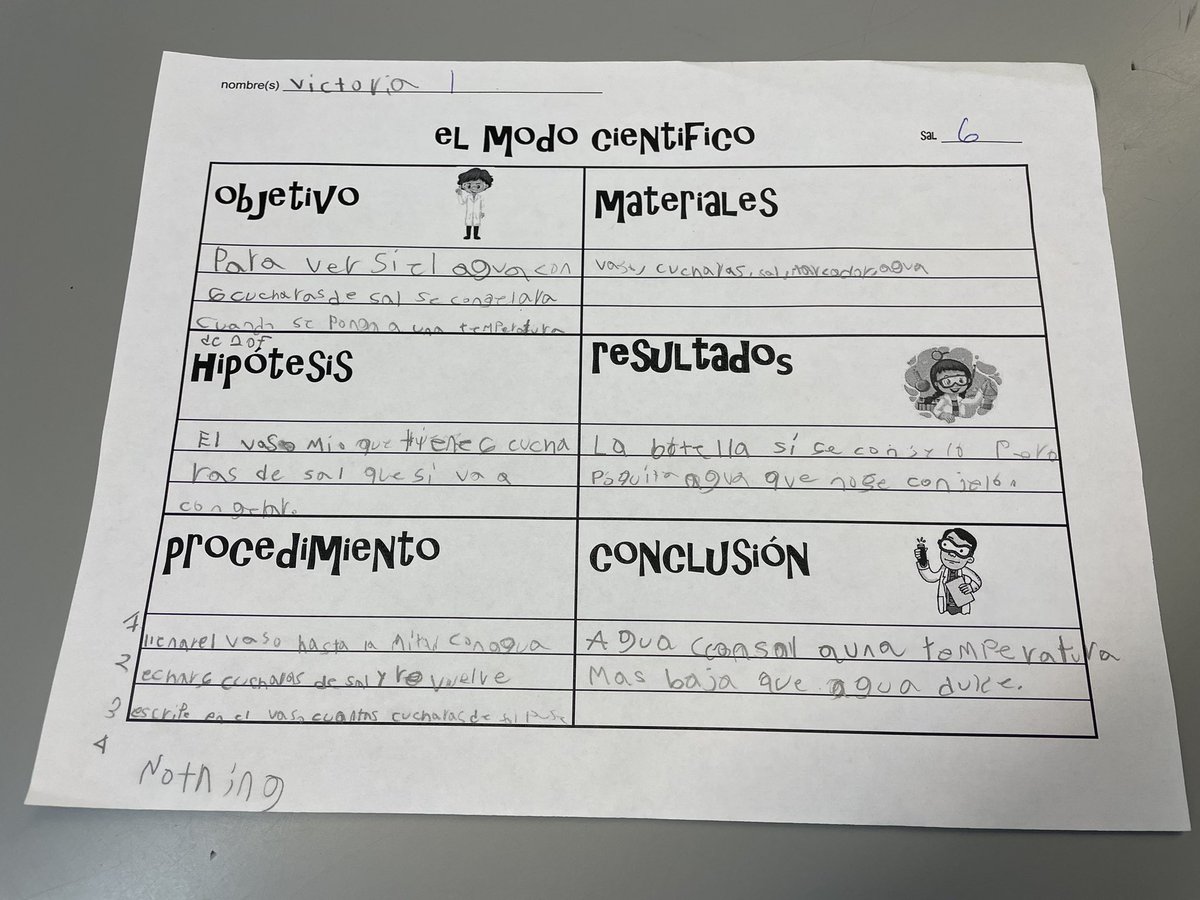 nombre(s) Victoria
eL Modo CientiFico
SaL 6
Objetivo
Para ver si el agua con
6 cucharas de sal se congelara
Cuando se pongn a una temperatura
de 20f
Materiales
vasos, cucharas, sal, marcador, agua
Hipótesis
El vaso mio que tiene 6 cucha
ras de sal que si va a
congelar.
resultados
La botella si se conjelo Pero
poquita agua que no se conjeló.
Procedimiento
1 llenar el vaso hasta la mitad con agua
2 echar 6 cucharas de sal y revuelve
3 escrife en el vaso cuantas cucharas de sal puse
4
Nothing
Conclusión
Agua con sal a una temperatura
Mas baja que agua dulce.